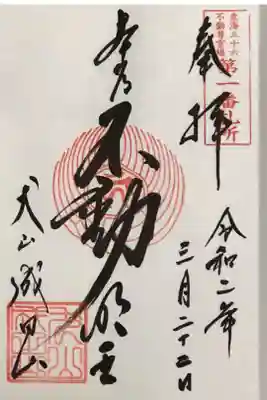 東海三十六
不動尊霊場
第一番札所
奉拝
令和二年
三月二十二日
不動明王
犬山成田山